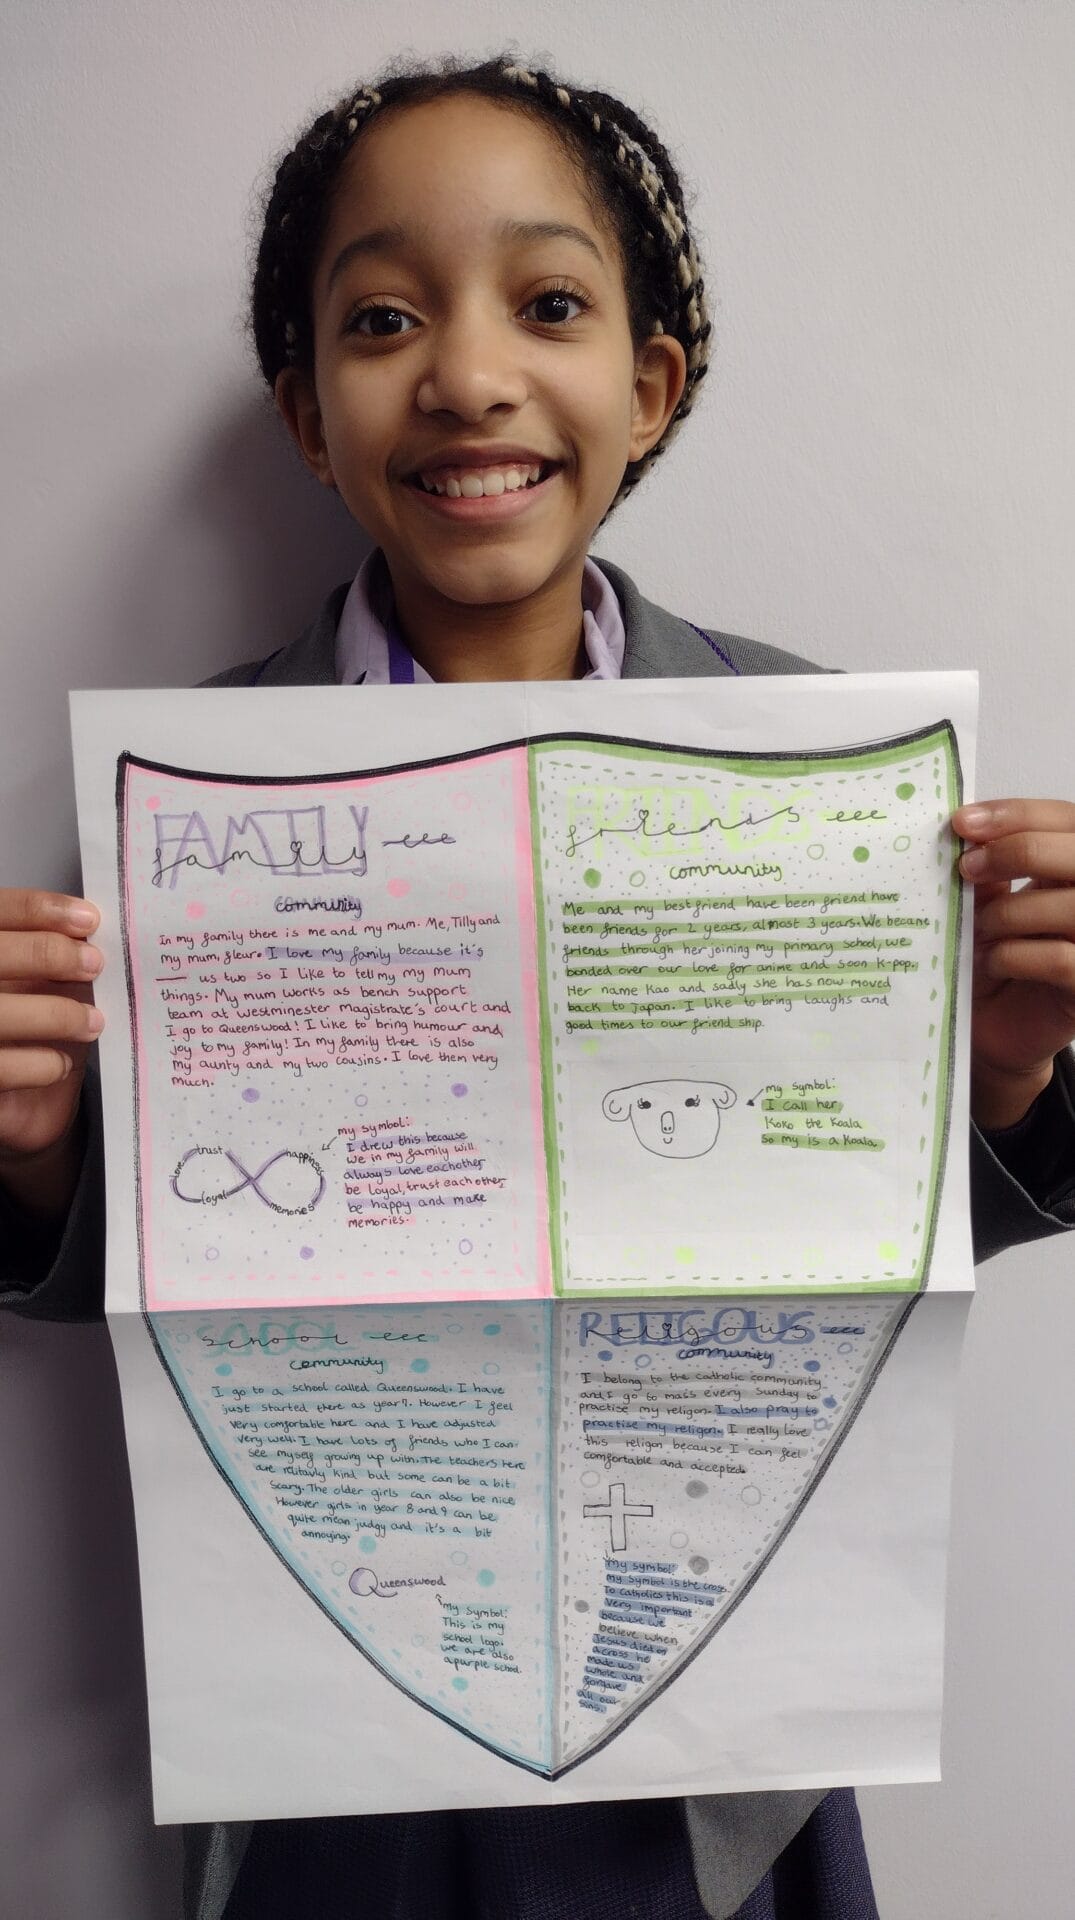 FAMILY
family
community
In my family there is me and my mum. Me, Tilly and
my mum, fleur. I love my family because it's
us two so I like to tell my my mum
things. My mum works as bench support
team at westminester magistrate's court and
I go to Queenswood! I like to bring humour and
joy to my family! In my family there is also
my aunty and my two cousins. I love them very
much.
my symbol:
I drew this because
we in my family will
always love eachother
be loyal, trust each other,
be happy and make
memories.
love
trust
happiness
loyal
memories
FRIENDS
friends
community
Me and my bestfriend have been friend have
been friends for 2 years, almost 3 years. We became
friends through her joining my primary school, we
bonded over our love for anime and soon K-pop.
Her name Kao and sadly she has now moved
back to Japan. I like to bring laughs and
good times to our friend ship.
my symbol:
I call her
Koko the Koala
so my is a Koala.
SCHOOL
school
community
I go to a school called Queenswood. I have
just started there as year 7. However I feel
very comfortable here and I have adjusted
very well. I have lots of friends who I can
see myself growing up with. The teachers here
are relitavly kind but some can be a bit
scary. The older girls can also be nice
However girls in year 8 and 9 can be
quite mean judgy and it's a bit
annoying.
Queenswood
my symbol:
This is my
school logo.
we are also
a purple school.
RELIGOUS
religous
community
I belong to the catholic community
and I go to mass every Sunday to
practise my religon. I also pray to
practise my religon. I really love
this religon because I can feel
comfortable and accepted.
my symbol:
my symbol is the cross.
To catholics this is a
very important
because we
believe when
Jesus died on
a cross he
made us
whole and
forgave
all our
sins.